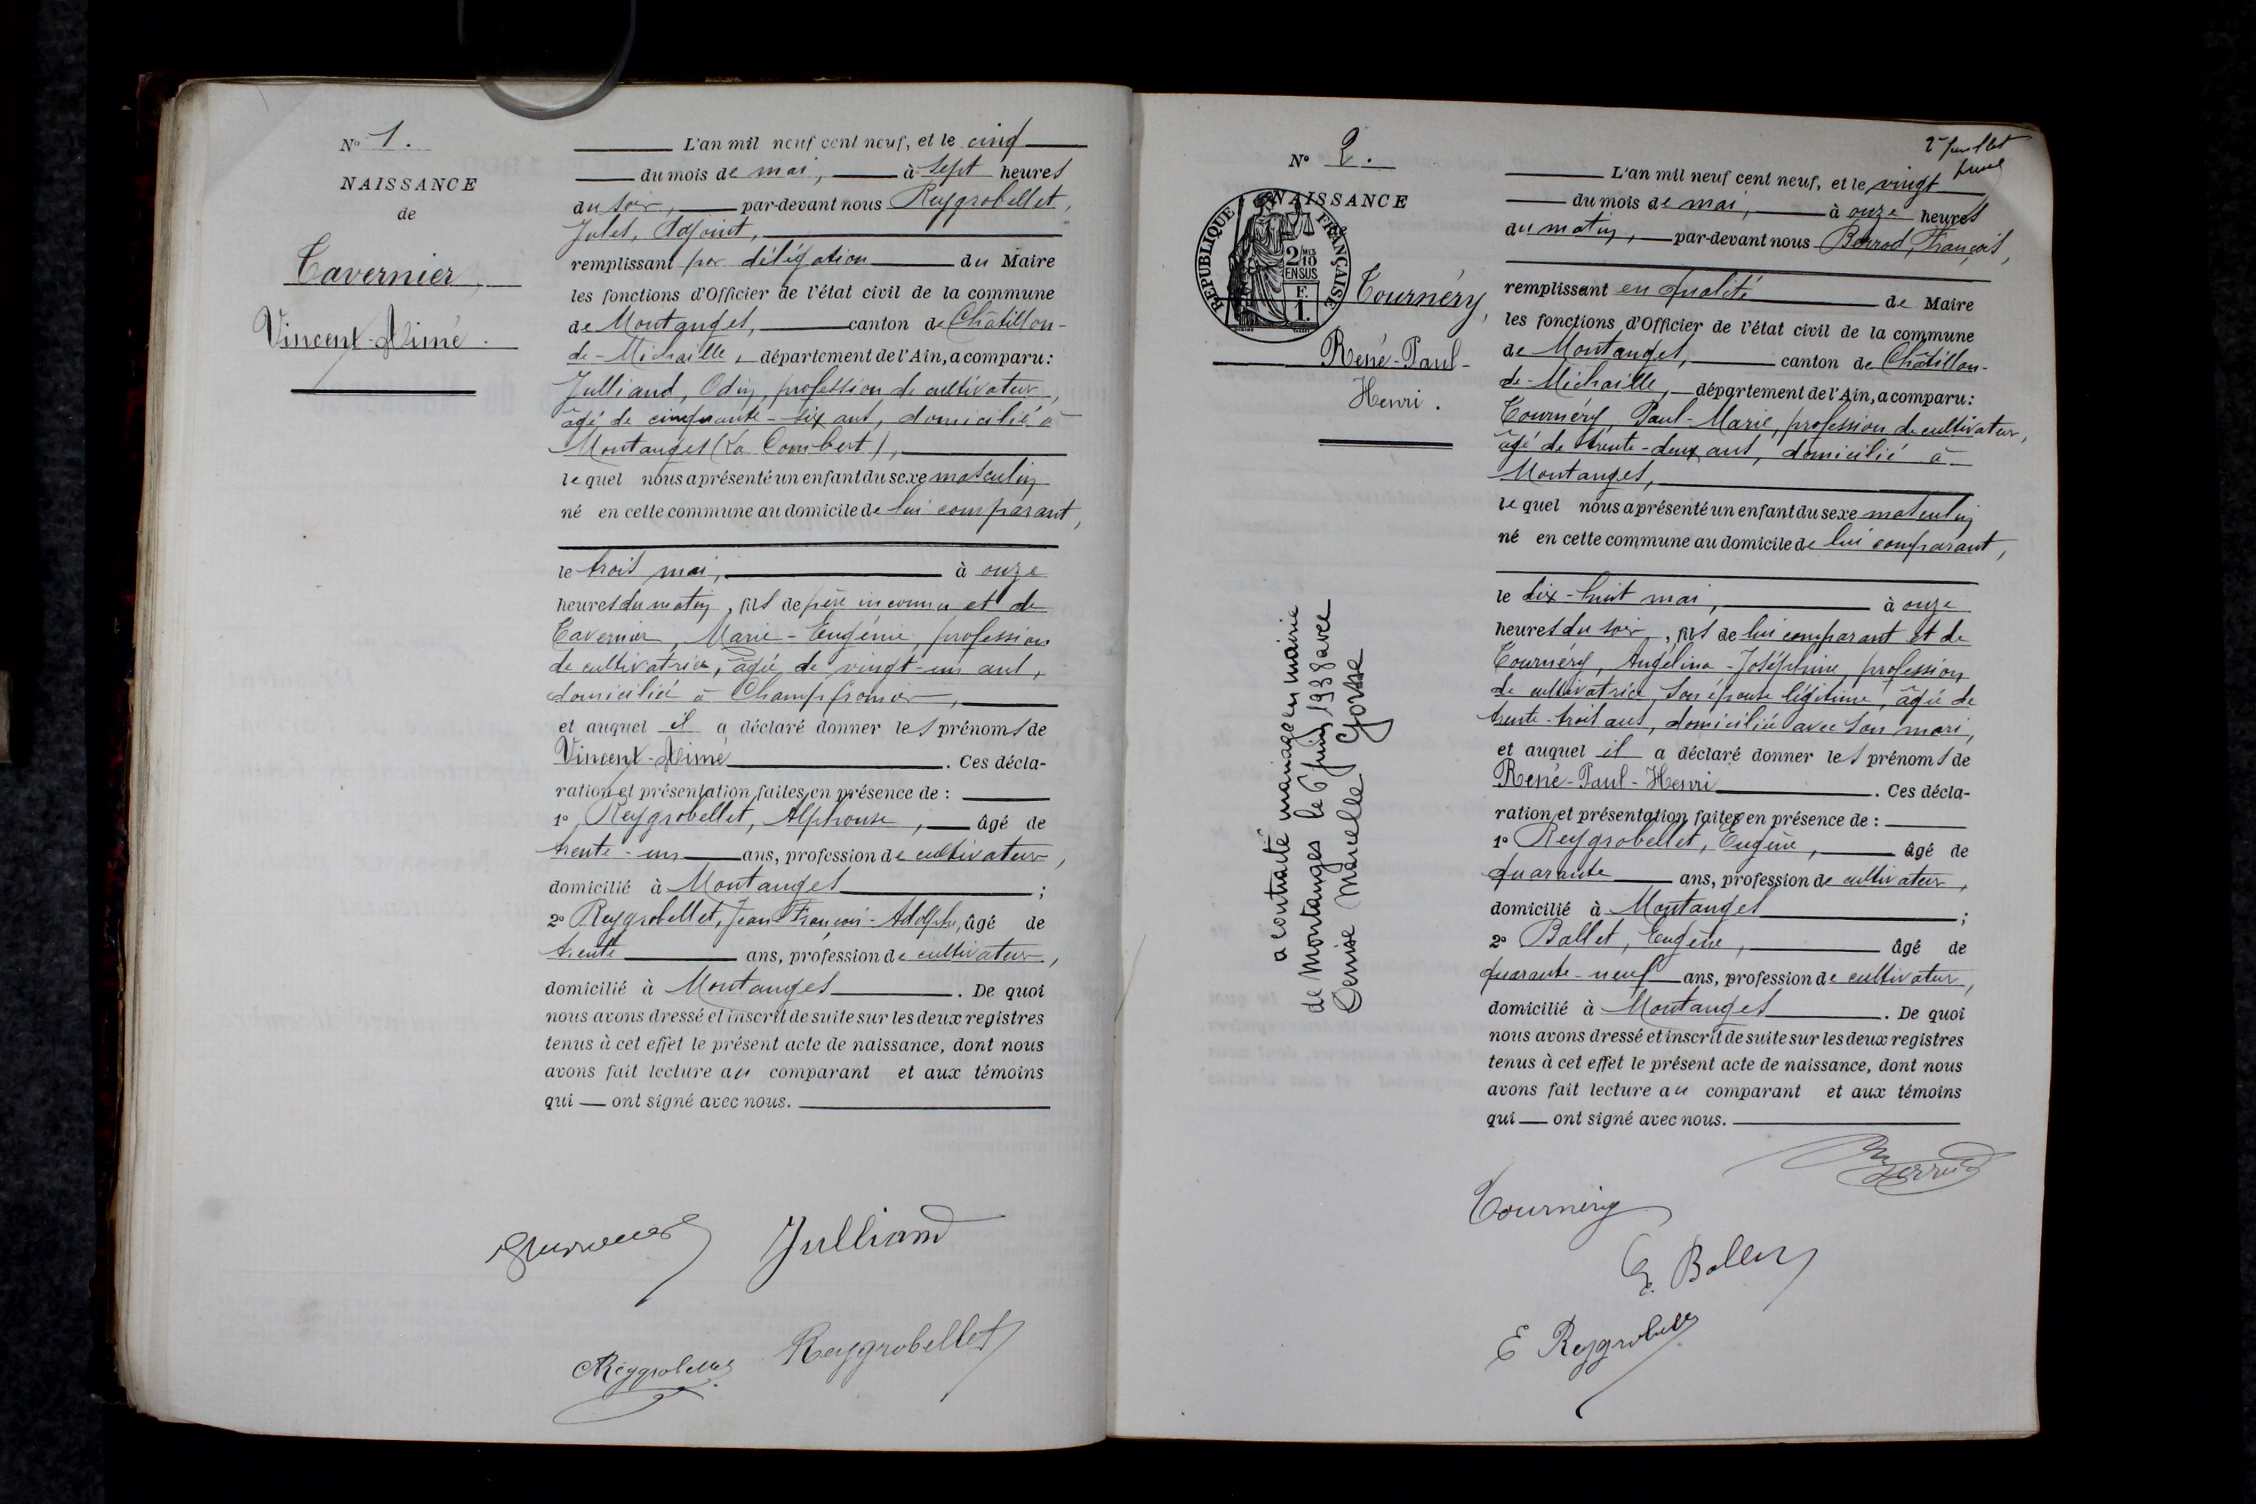 Nº 1.
NAISSANCE
de
Tavernier,
Vincent-Aimé.
L'an mil neuf cent neuf, et le cinq
du mois de mai, à sept heures
du soir, par-devant nous Reygrobellet,
Jules, Adjoint,
remplissant par délégation du Maire
les fonctions d'Officier de l'état civil de la commune
de Montanges, canton de Châtillon-
de-Michaille, département de l'Ain, a comparu:
Julliand, Odin, profession de cultivateur,
âgé de cinquante-six ans, domicilié à
Montanges (La Combert),
lequel nous a présenté un enfant du sexe masculin
né en cette commune au domicile de lui comparant,
le trois mai, à onze
heures du matin, fils de père inconnu et de
Tavernier, Marie-Eugénie, profession
de cultivatrice, âgée de vingt-un ans,
domiciliée à Champfromier,
et auquel il a déclaré donner les prénoms de
Vincent-Aimé. Ces décla-
ration et présentation faites en présence de :
1º Reygrobellet, Alphonse, âgé de
trente-un ans, profession de cultivateur,
domicilié à Montanges ;
2º Reygrobellet, Jean François-Adolphe, âgé de
trente ans, profession de cultivateur,
domicilié à Montanges. De quoi
nous avons dressé et inscrit de suite sur les deux registres
tenus à cet effet le présent acte de naissance, dont nous
avons fait lecture au comparant et aux témoins
qui ont signé avec nous.
Julliand
Reygrobellet
Reygrobellet
2e feuillet
Nº 2.
NAISSANCE
RÉPUBLIQUE FRANÇAISE
2/10 EN SUS
F.
1.
Tournéry,
René-Paul-
Henri.
a contracté mariage en mairie
de Montanges le 6 juin 1938 avec
Denise Marcelle Gosse
L'an mil neuf cent neuf, et le vingt
du mois de mai, à onze heures
du matin, par-devant nous Berrod, François,
remplissant en qualité de Maire
les fonctions d'Officier de l'état civil de la commune
de Montanges, canton de Châtillon-
de-Michaille, département de l'Ain, a comparu:
Tournéry, Paul-Marie, profession de cultivateur,
âgé de trente-deux ans, domicilié à
Montanges,
lequel nous a présenté un enfant du sexe masculin
né en cette commune au domicile de lui comparant,
le dix-huit mai, à onze
heures du soir, fils de lui comparant et de
Tournéry, Angélina-Joséphine, profession
de cultivatrice, son épouse légitime, âgée de
trente-trois ans, domiciliée avec son mari,
et auquel il a déclaré donner les prénoms de
René-Paul-Henri. Ces décla-
ration et présentation faites en présence de :
1º Reygrobellet, Eugène, âgé de
quarante ans, profession de cultivateur,
domicilié à Montanges ;
2º Ballet, Eugène, âgé de
quarante-neuf ans, profession de cultivateur,
domicilié à Montanges. De quoi
nous avons dressé et inscrit de suite sur les deux registres
tenus à cet effet le présent acte de naissance, dont nous
avons fait lecture au comparant et aux témoins
qui ont signé avec nous.
Berrod
Tournéry
E. Ballet
E Reygrobellet